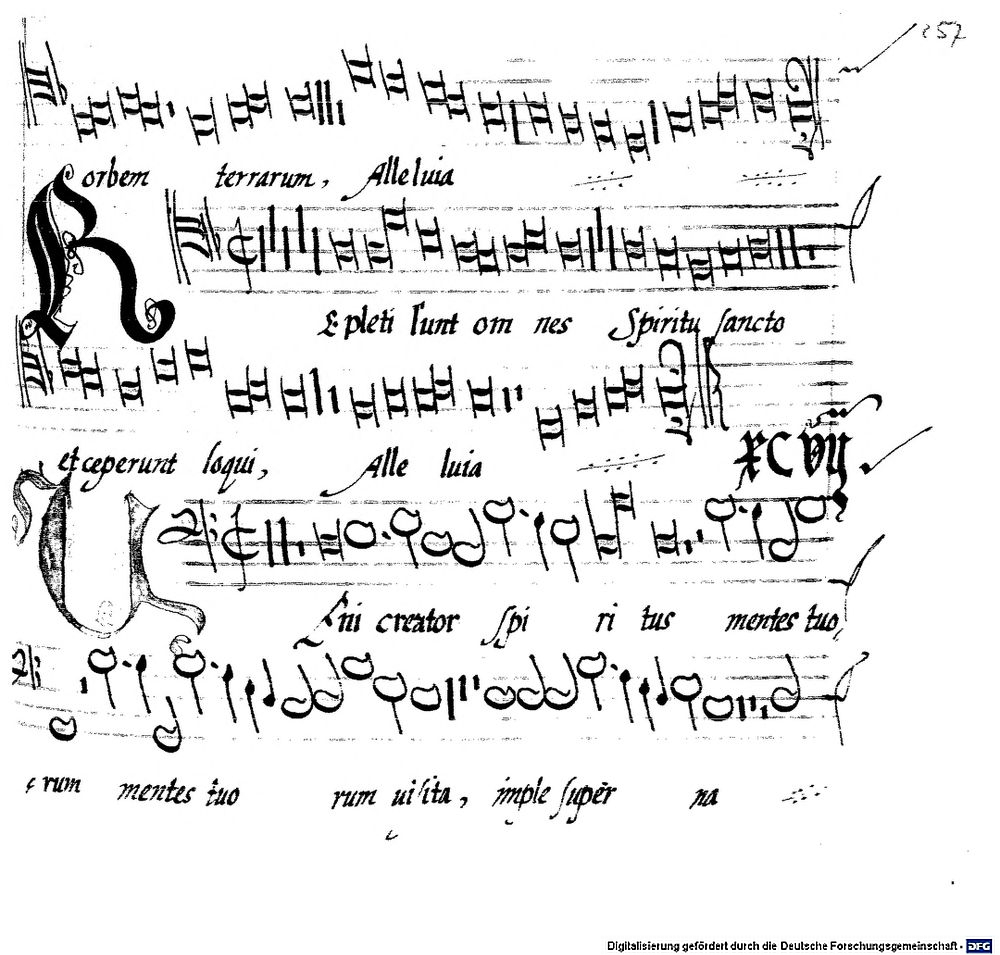 257
orbem terrarum, Alleluia
R Epleti sunt om nes Spiritu sancto
et ceperunt loqui, Alle luia
XCVIJ
V Eni creator Spi ri tus mentes tuo,
rum mentes tuo rum uisita, imple super na
Digitalisierung gefördert durch die Deutsche Forschungsgemeinschaft - DFG